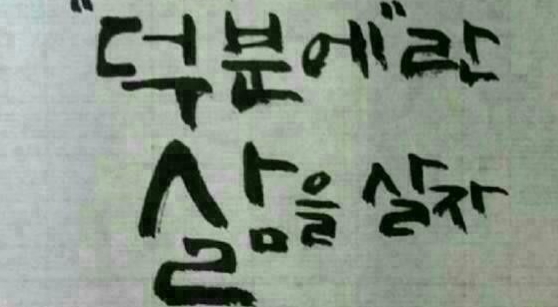 "덕분에"란
삶을 살자